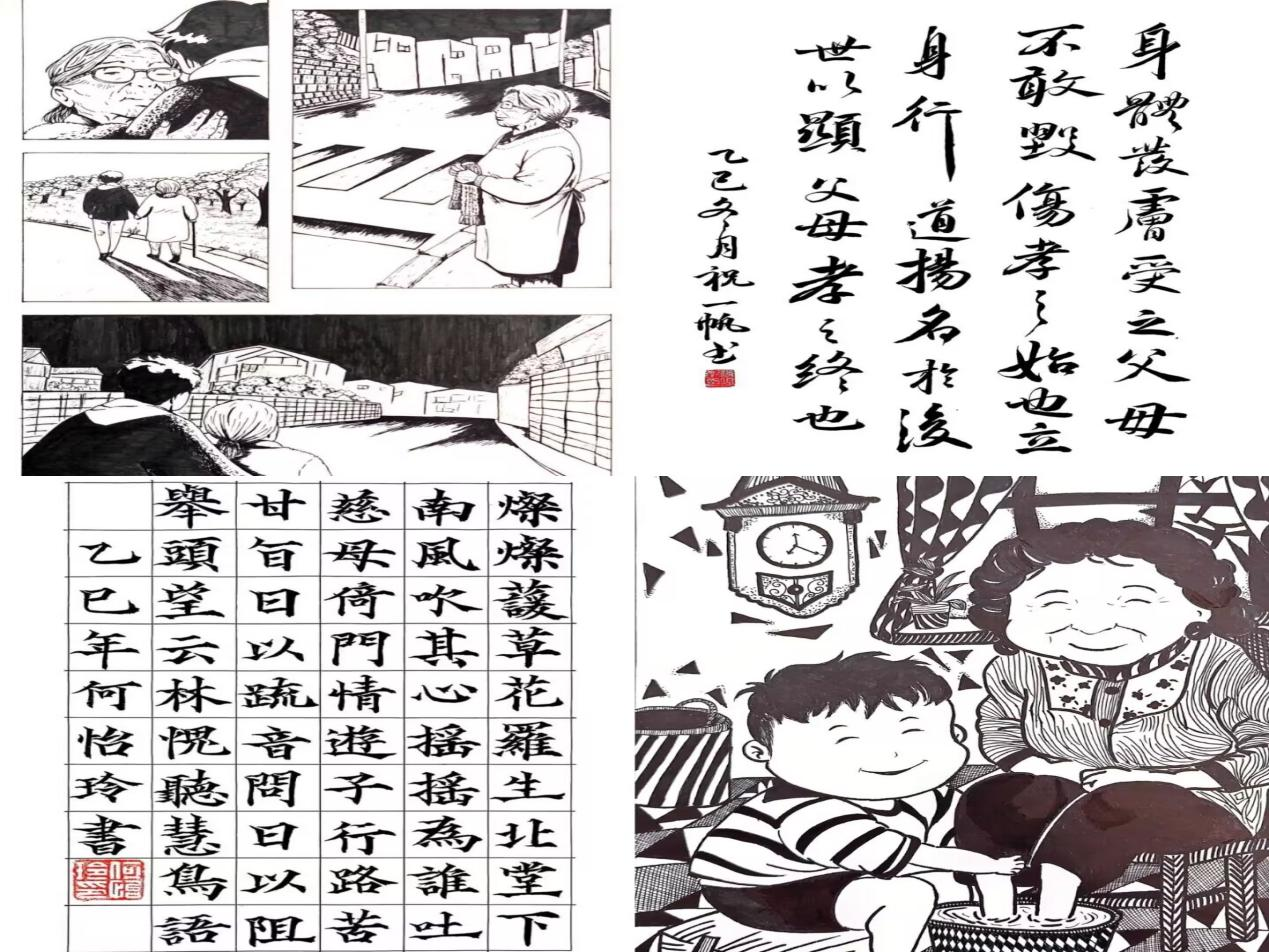 身體髮膚受之父母
不敢毀傷孝之始也立
身行道揚名於後
世以顯父母孝之終也
乙巳冬月祝一帆书
燦燦蘐草花羅生北堂下
南風吹其心摇摇為誰吐
慈母倚門情遊子行路苦
甘旨日以疏音問日以阻
舉頭望云林愧聽慧鳥語
乙巳年何怡玲書
何怡玲印